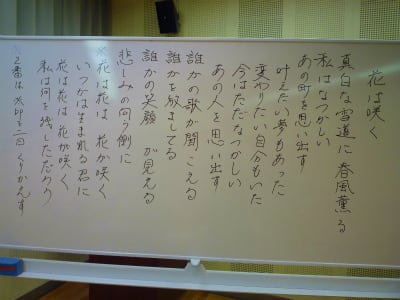 花は咲く
真白な雪道に 春風薫る
私はなつかしい
あの町を思い出す
叶えたい夢もあった
変わりたい自分もいた
今はただなつかしい
あの人を思い出す
誰かの歌が聞こえる
誰かを励ましてる
誰かの笑顔が見える
悲しみの向う側に
※花は花は 花が咲く
いつか生まれる君に
花は花は花が咲く
私は何を残しただろう
※2番は ※印を二回くりかえす